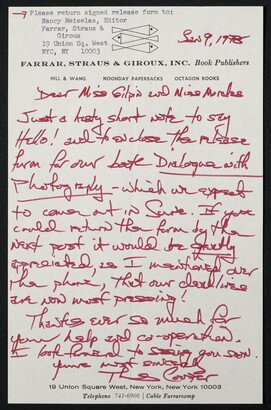 → Please return signed release form to:
Nancy Meiselas, Editor
Farrar, Straus &
Giroux
19 Union Sq. West
NYC, NY 10003
Jan 9, 1978
FARRAR, STRAUS & GIROUX, INC. Book Publishers
HILL & WANG NOONDAY PAPERBACKS OCTAGON BOOKS
Dear Miss Gilpin and Miss
Just a hasty short note to say
Hello! and to enclose the release
form for our book Dialogue with
Photography - which we expect
to come out in June. If you
could return the form by the
next post it would be greatly
appreciated, as I mentioned over
the phone, that our deadlines
are now most pressing!
Thanks ever so much for
your help and co-operation.
I look forward to seeing you soon.
yours most sincerely
Cooper
19 Union Square West, New York, New York 10003
Telephone 741-6900 | Cable Farrarcomp